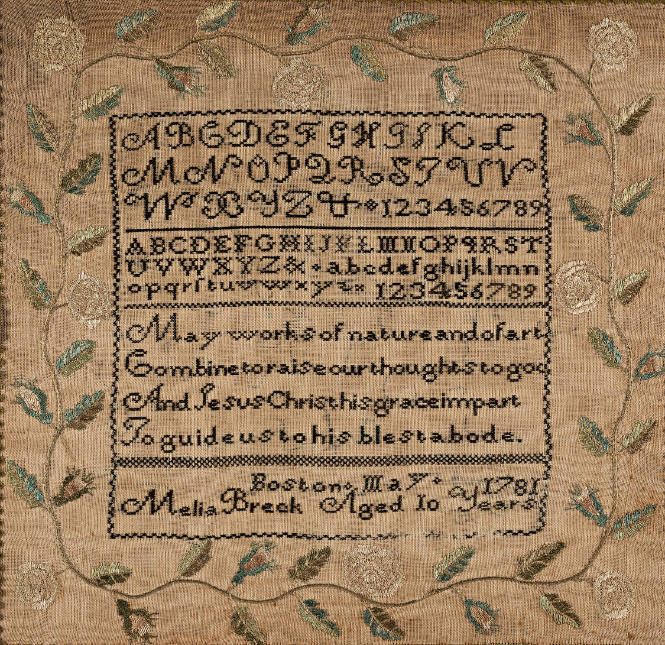 A B C D E F G H I J K L
M N O P Q R S T U V
W X Y Z & 1 2 3 4 5 6 7 8 9
A B C D E F G H I J K L M N O P Q R S T
U V W X Y Z & a b c d e f g h i j k l m n
o p q r ſ t u v w x y z & 1 2 3 4 5 6 7 8 9
May works of nature and of art
Combine to raise our thoughts to god
And Jesus Christ his grace impart
To guide us to his blest abode.
Boston May 1781
Melia Breck Aged 10 Years